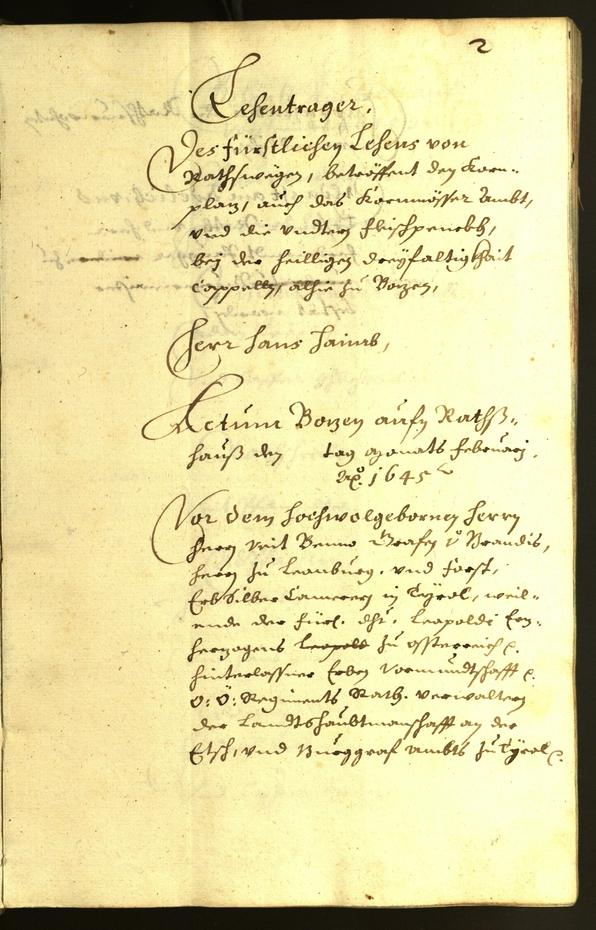 2
Lehentrager.
Des fürstlichen Lehens von
Rathswegen, betröffent den Korn¬
plaz, auch das Kornmösser Ambt,
und die undtern fleischpenckh,
bej der heilligen dreÿfaltigkhait
Cappelln, alhie zu Bozen,
Herr Hans Haimb,
Actum Bozen aufm Rathß¬
hauß den tag monats februarj.
Ao. 1645
Vor dem Hochwolgebornen Herrn
Herrn Veit Benno Grafen v Brandis,
Herrn zu Leonburg, und Forst,
Erb Silber Camerern in Tÿrol, weil¬
ende der fürl. dht. Leopoldi Erz¬
herzogens Leopold zu Össterreich &.
hinterlassner Erben Vormundtschafft &.
O: Ö: Regiments Rath. verwaltern
der Landtshaubtmanschafft an der
Etsch, und Burggraf Ambts zu Tÿrol &.